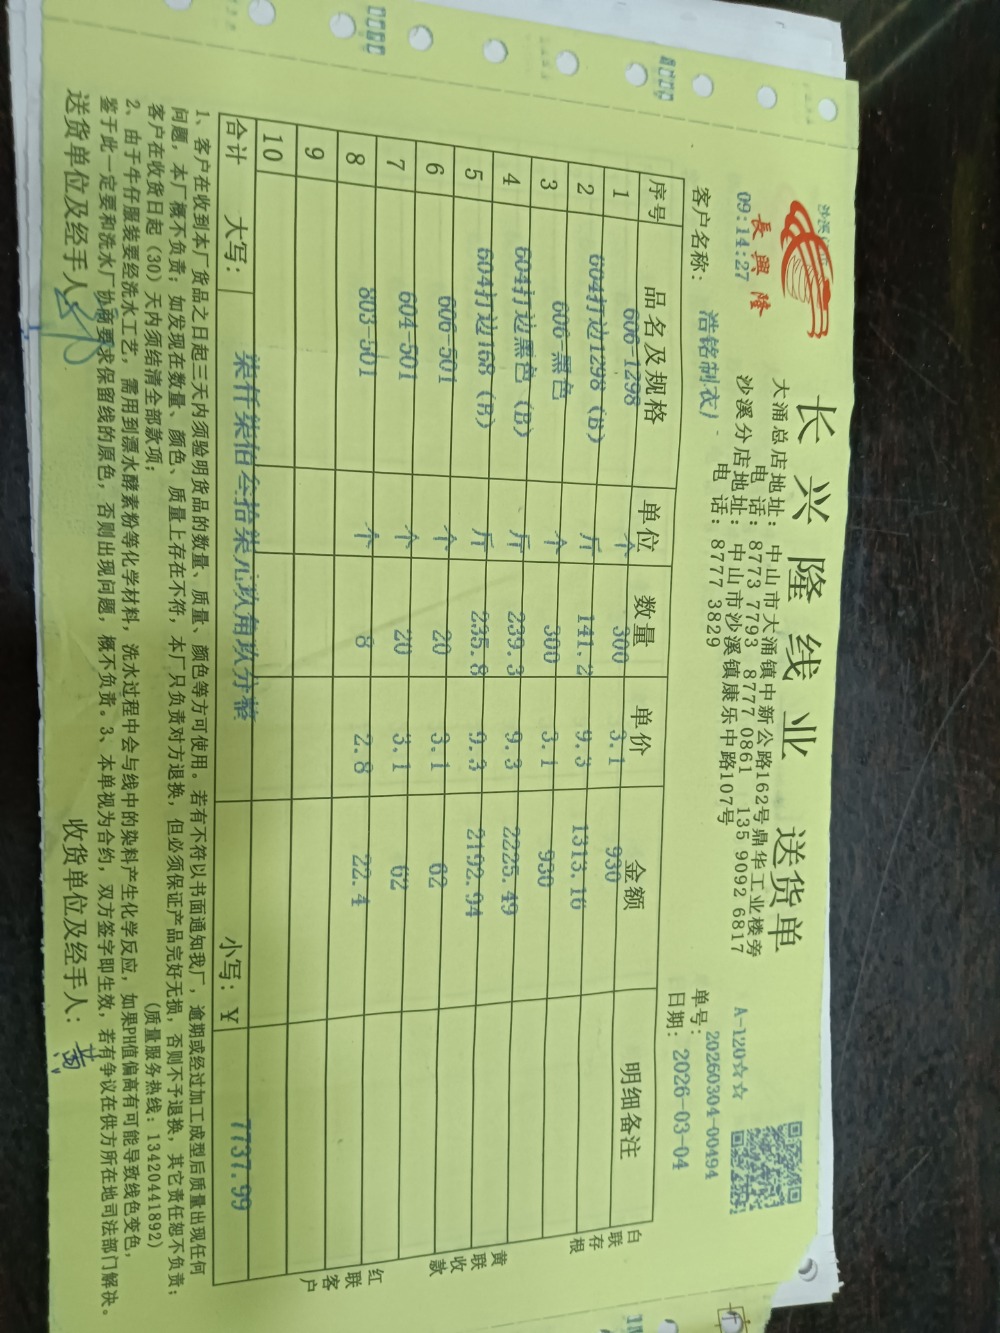 长兴隆线业 送货单
長興隆
09:14:27
大涌总店地址：中山市大涌镇中新公路162号鼎华工业楼旁
电 话：8773 7793 8777 0861 135 9092 6817
沙溪分店地址：中山市沙溪镇康乐中路107号
电 话：8777 3829
A-120☆☆
单号：20260304-00494
客户名称：浩铭制衣厂
日期：2026-03-04
序号 品名及规格 单位 数量 单价 金额 明细备注
1 606-1298 个 300 3.1 930
2 604打边1298 (B) 斤 141.2 9.3 1313.16
3 606-黑色 个 300 3.1 930
4 604打边黑色 (B) 斤 239.3 9.3 2225.49
5 604打边168 (B) 斤 235.8 9.3 2192.94
6 606-501 个 20 3.1 62
7 604-501 个 20 3.1 62
8 803-501 个 8 2.8 22.4
9
10
合计 大写：柒仟柒佰叁拾柒元玖角玖分整 小写：¥ 7737.99
白联存根
黄联收款
红联客户
1、客户在收到本厂货品之日起三天内须验明货品的数量、质量、颜色等方可使用。若有不符以书面通知我厂，逾期或经过加工成型后质量出现任何
问题，本厂概不负责；如发现在数量、颜色、质量上存在不符，本厂只负责对方退换，但必须保证产品完好无损，否则不予退换，其它责任恕不负责；
客户在收货日起（30）天内须结清全部款项； (质量服务热线：13420441892)
2、由于牛仔服装要经洗水工艺，需用到漂水酵素粉等化学材料，洗水过程中会与线中的染料产生化学反应，如果PH值偏高有可能导致线色变色，
鉴于此一定要和洗水厂协商要求保留线的原色，否则出现问题，概不负责。3、本单视为合约，双方签字即生效，若有争议在供方所在地司法部门解决。
送货单位及经手人： 收货单位及经手人：